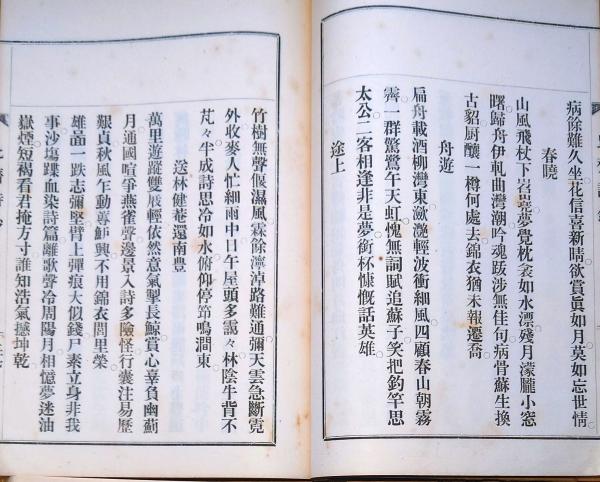 病餘難久坐花信喜新晴欲賞眞如月莫如忘世情
春曉
山風飛杖下岩巒夢覺枕衾如水漂殘月濛朧小窓
曙歸舟伊軋曲灣潮吟魂跋涉無佳句病骨蘇生換
古貂厨釀一樽何處去錦衣猶未報遷喬
舟遊
扁舟載酒柳灣東瀲灔輕波衝細風四顧春山朝霧
霽一群驚鷺午天虹愧無詞賦追蘇子笑把釣竿思
太公二客相逢非是夢銜杯慷慨話英雄
途上
竹樹無聲偃濕風霖餘濘淖路難通彌天雲急斷霓
外收麥人忙細雨中日午屋頭多靄々林陰牛背不
芃々半成詩思冷如水俯仰停笻鳴澗東
送林健菴還南豐
萬里遊蹤雙屐輕依然意氣掣長鯨賞心辜負幽薊
月通國喧爭燕雀聲邊景入詩多險怪行囊注易歷
艱貞秋風乍動蓴鱸興不用錦衣閭里榮
雄心一跌志彌堅臂上彈痕大似錢尸素立身非我
事沙塲蹀血染詩篇離歌聲冷周陽月相憶夢迷油
嶽煙短褐看君掩方寸誰知浩氣撼坤乾